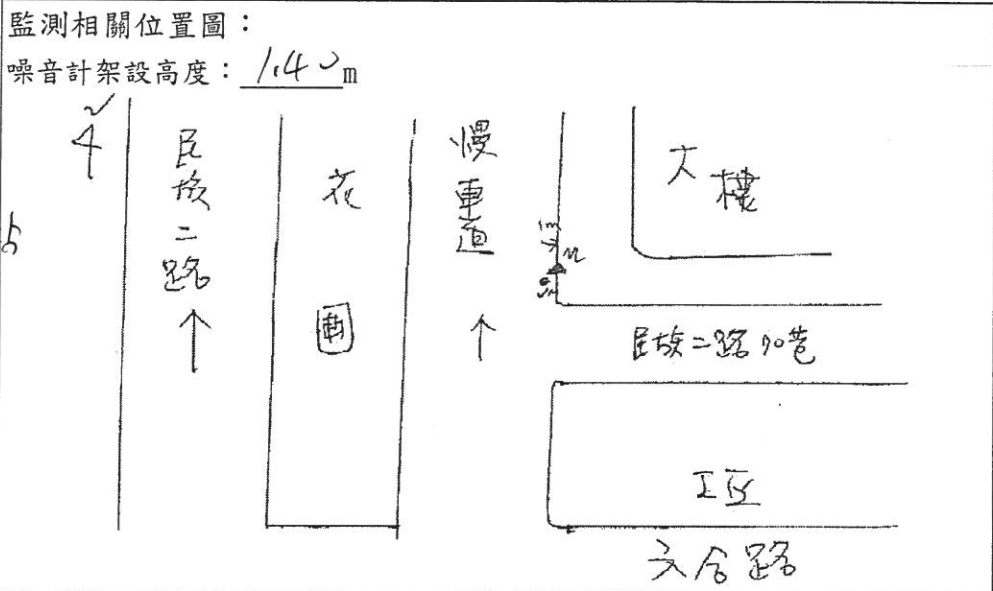 監測相關位置圖：
噪音計架設高度：1.40m
民族二路
花圃
慢車道
大樓
民族二路70巷
工區
六合路